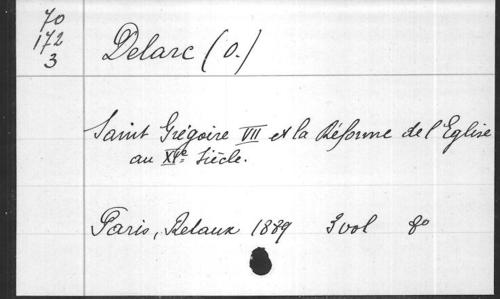 70
172
3
Delarc (O.)
Saint Grégoire VII et la Réforme de l'Eglise
au XIe Siècle.
Paris, Retaux 1889 3 vol 8o